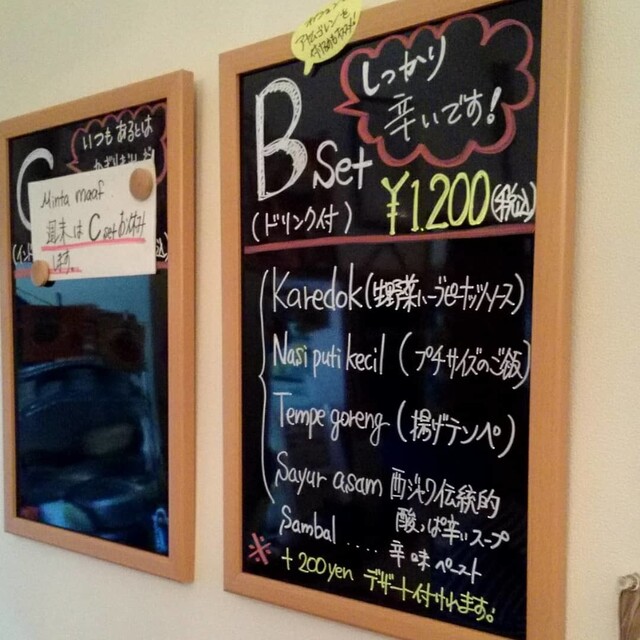 いつもあるとは
C
Minta maaf
週末は C set お休み
します
オプションで
B Set
しっかり
辛いです!
(ドリンク付)
¥1,200(税込)
Karedok(生野菜ハーブピーナッツソース)
Nasi puti kecil (プチサイズのご飯)
Tempe goreng (揚げテンペ)
Sayur asam 西ジャワ伝統的
酸っぱ辛いスープ
Sambal .... 辛味ペースト
※ + 200yen デザート付けれます。